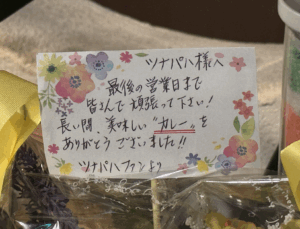 ツナパハ様へ
最後の営業日まで
皆さんで頑張って下さい!
長い間、美味しい"カレー"を
ありがとうございました!!
ツナパハファンより